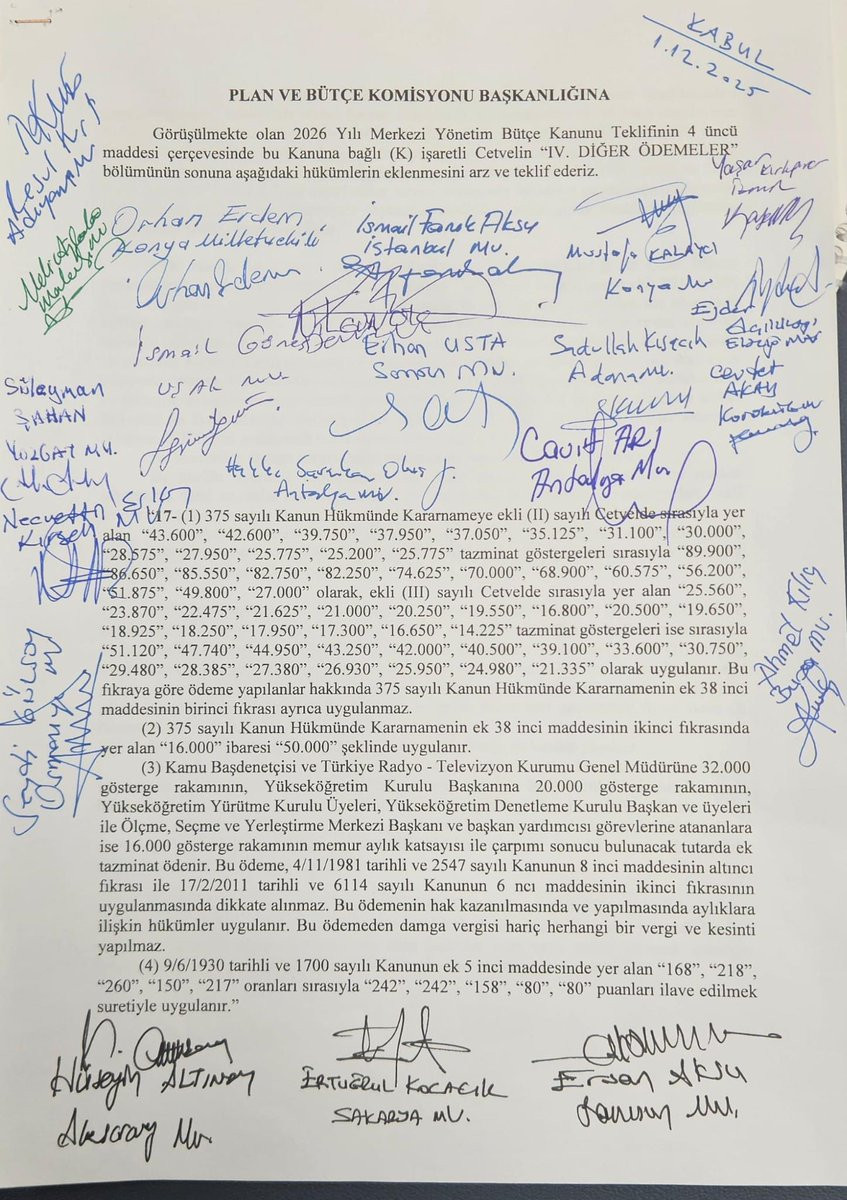 KABUL
1.12.2025
PLAN VE BÜTÇE KOMİSYONU BAŞKANLIĞINA
Görüşülmekte olan 2026 Yılı Merkezi Yönetim Bütçe Kanunu Teklifinin 4 üncü
maddesi çerçevesinde bu Kanuna bağlı (K) işaretli Cetvelin “IV. DİĞER ÖDEMELER”
bölümünün sonuna aşağıdaki hükümlerin eklenmesini arz ve teklif ederiz.
Adıyaman
Orhan Erdem
Konya Milletvekili
Orhan Erdem
İsmail Faruk Aksu
İstanbul Mv.
Mustafa KALAYCI
Konya Mv
Yaşar Kırkpınar
İzmir
İsmail Güneş
UŞAK MV.
Erhan USTA
Samsun Mv.
Sadullah Kısacık
Adana Mv.
Ejder
Açıkkapı
Elazığ Mv
Cevdet
AKAY
Karabük
Süleyman
ŞAHAN
YOZGAT MV.
Hakkı Saruhan Oluç
Antalya Mv.
Cavit ARI
Antalya Mv
Necmettin Erkan
Kırşehir MV
“17- (1) 375 sayılı Kanun Hükmünde Kararnameye ekli (II) sayılı Cetvelde sırasıyla yer
alan “43.600”, “42.600”, “39.750”, “37.950”, “37.050”, “35.125”, “31.100”, “30.000”,
“28.575”, “27.950”, “25.775”, “25.200”, “25.775” tazminat göstergeleri sırasıyla “89.900”,
“86.650”, “85.550”, “82.750”, “82.250”, “74.625”, “70.000”, “68.900”, “60.575”, “56.200”,
“51.875”, “49.800”, “27.000” olarak, ekli (III) sayılı Cetvelde sırasıyla yer alan “25.560”,
“23.870”, “22.475”, “21.625”, “21.000”, “20.250”, “19.550”, “16.800”, “20.500”, “19.650”,
“18.925”, “18.250”, “17.950”, “17.300”, “16.650”, “14.225” tazminat göstergeleri ise sırasıyla
“51.120”, “47.740”, “44.950”, “43.250”, “42.000”, “40.500”, “39.100”, “33.600”, “30.750”,
“29.480”, “28.385”, “27.380”, “26.930”, “25.950”, “24.980”, “21.335” olarak uygulanır. Bu
fıkraya göre ödeme yapılanlar hakkında 375 sayılı Kanun Hükmünde Kararnamenin ek 38 inci
maddesinin birinci fıkrası ayrıca uygulanmaz.
(2) 375 sayılı Kanun Hükmünde Kararnamenin ek 38 inci maddesinin ikinci fıkrasında
yer alan “16.000” ibaresi “50.000” şeklinde uygulanır.
(3) Kamu Başdenetçisi ve Türkiye Radyo - Televizyon Kurumu Genel Müdürüne 32.000
gösterge rakamının, Yükseköğretim Kurulu Başkanına 20.000 gösterge rakamının,
Yükseköğretim Yürütme Kurulu Üyeleri, Yükseköğretim Denetleme Kurulu Başkan ve üyeleri
ile Ölçme, Seçme ve Yerleştirme Merkezi Başkanı ve başkan yardımcısı görevlerine atananlara
ise 16.000 gösterge rakamının memur aylık katsayısı ile çarpımı sonucu bulunacak tutarda ek
tazminat ödenir. Bu ödeme, 4/11/1981 tarihli ve 2547 sayılı Kanunun 8 inci maddesinin altıncı
fıkrası ile 17/2/2011 tarihli ve 6114 sayılı Kanunun 6 ncı maddesinin ikinci fıkrasının
uygulanmasında dikkate alınmaz. Bu ödemenin hak kazanılmasında ve yapılmasında aylıklara
ilişkin hükümler uygulanır. Bu ödemeden damga vergisi hariç herhangi bir vergi ve kesinti
yapılmaz.
(4) 9/6/1930 tarihli ve 1700 sayılı Kanunun ek 5 inci maddesinde yer alan “168”, “218”,
“260”, “150”, “217” oranları sırasıyla “242”, “242”, “158”, “80”, “80” puanları ilave edilmek
suretiyle uygulanır.”
Ahmet Kılıç
Bursa Mv.
Hüseyin ALTINSOY
Aksaray Mv.
ERTUĞRUL KOCACIK
SAKARYA MV.
Ersan AKSU
Samsun Mv.